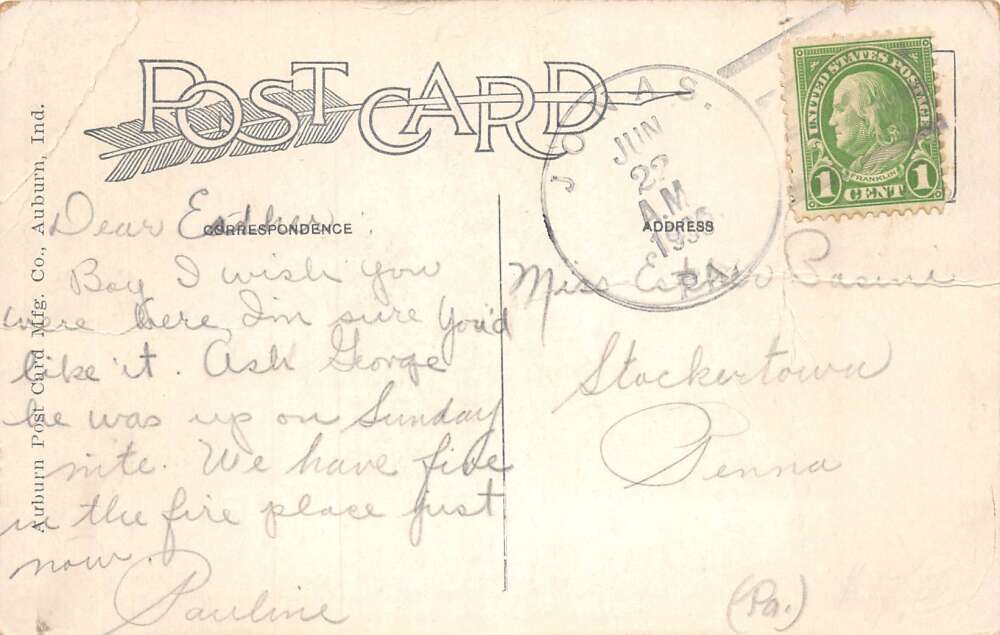 POST CARD
JONAS.
JUN
22
A.M
1936
PA.
UNITED STATES POSTAGE
FRANKLIN
1 CENT 1
CORRESPONDENCE
ADDRESS
Auburn Post Card Mfg. Co., Auburn, Ind.
Dear Esther.
Boy I wish you
were here, I'm sure you'd
like it. Ask George
he was up on Sunday
nite. We have five
in the fire place just
now.
Pauline
Miss Esther
Stockertown
Penna
(Pa.)